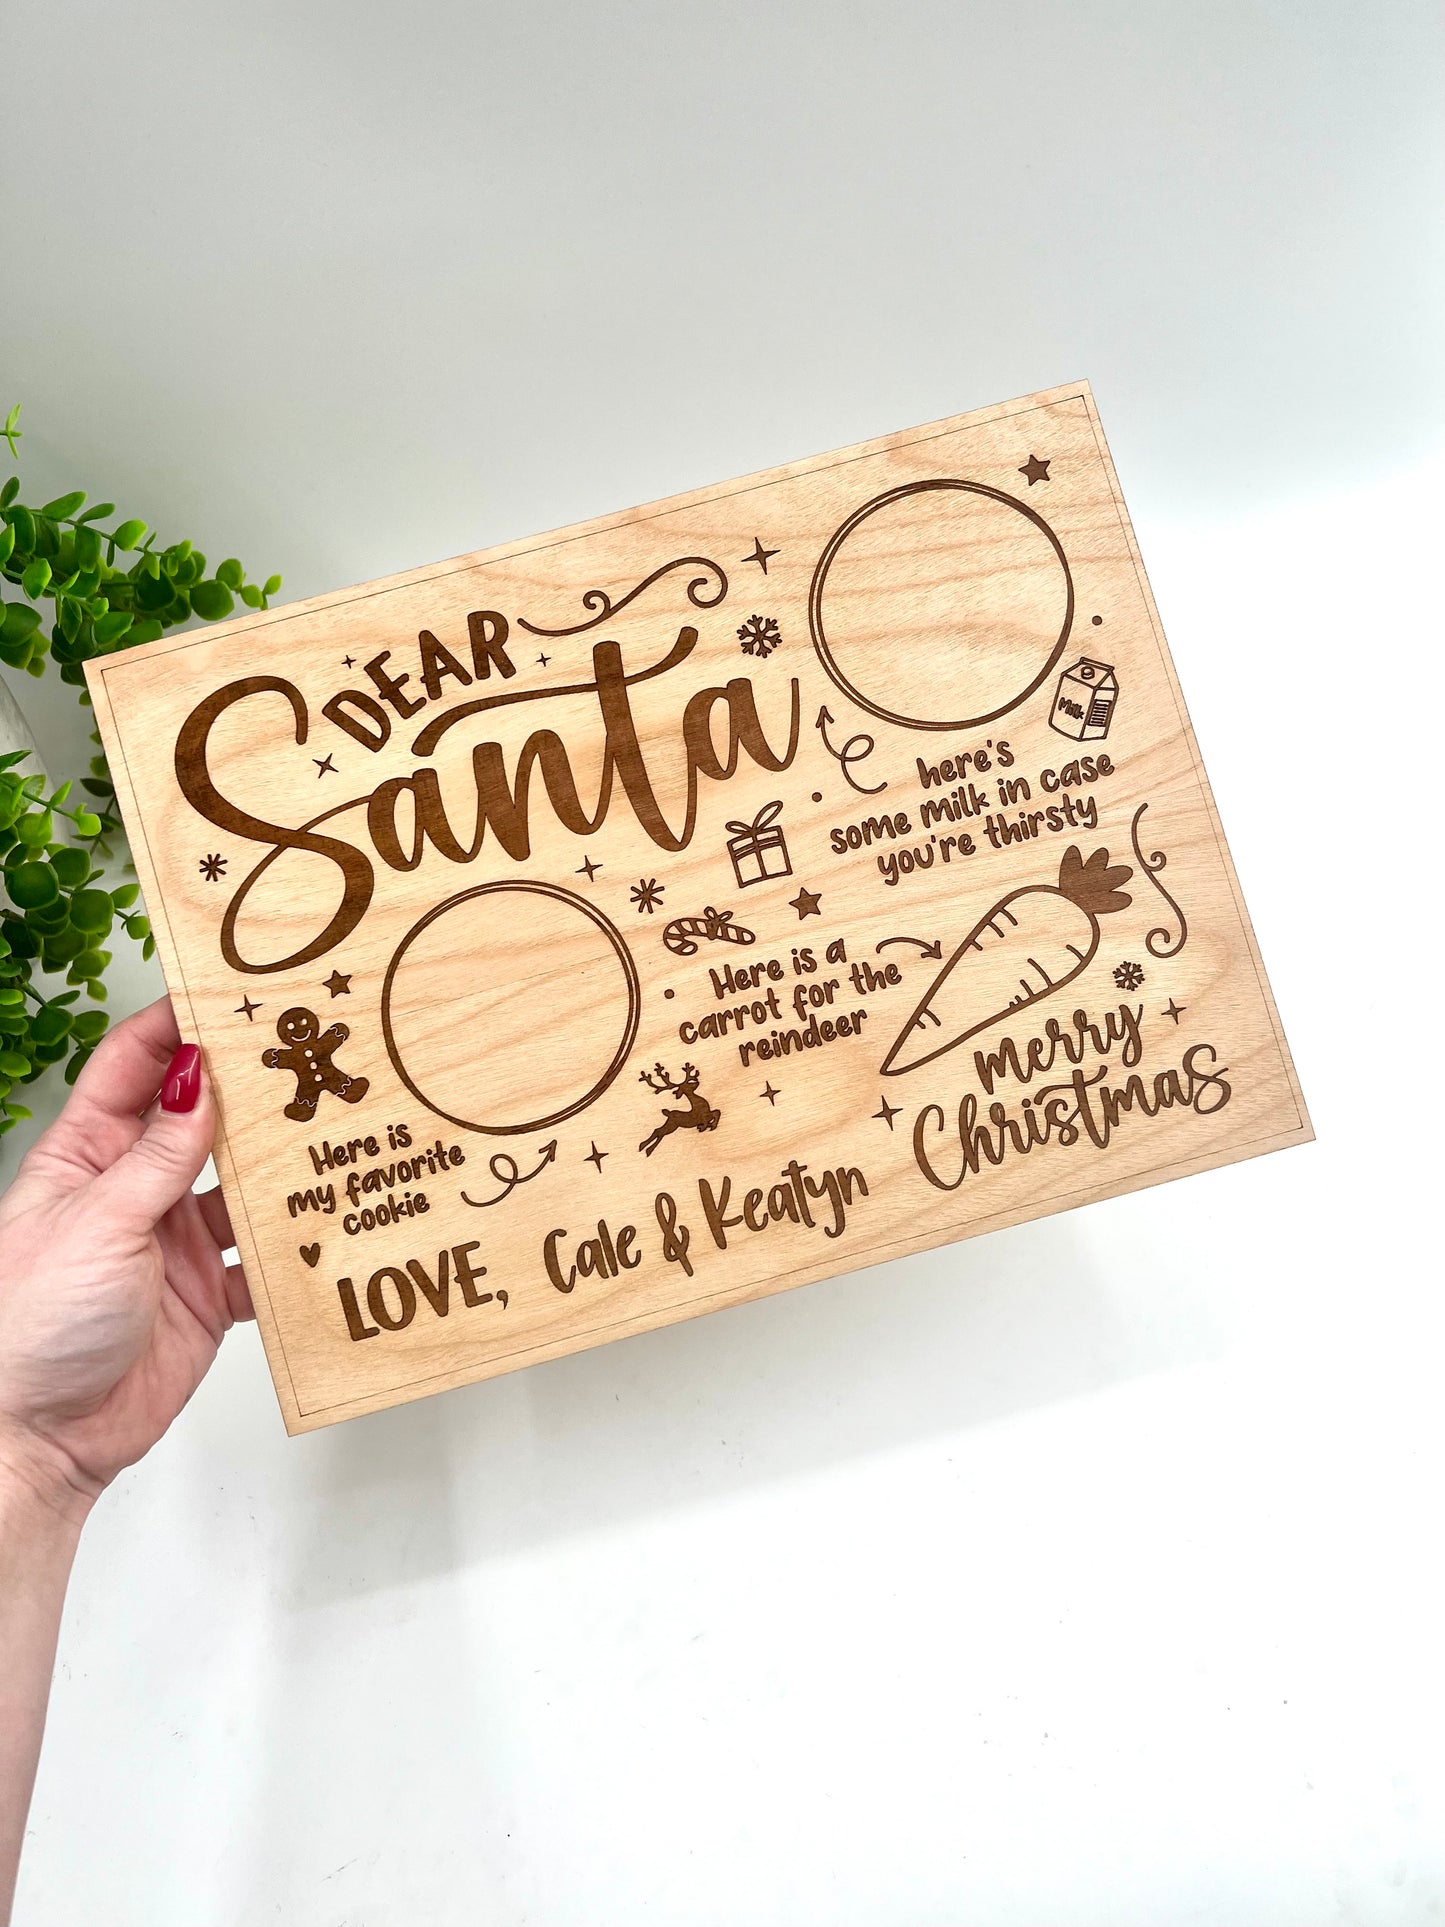 DEAR
Santa
Milk
here's
some milk in case
you're thirsty
Here is a
carrot for the
reindeer
Here is
my favorite
cookie
merry
Christmas
LOVE, Cale & Keatyn